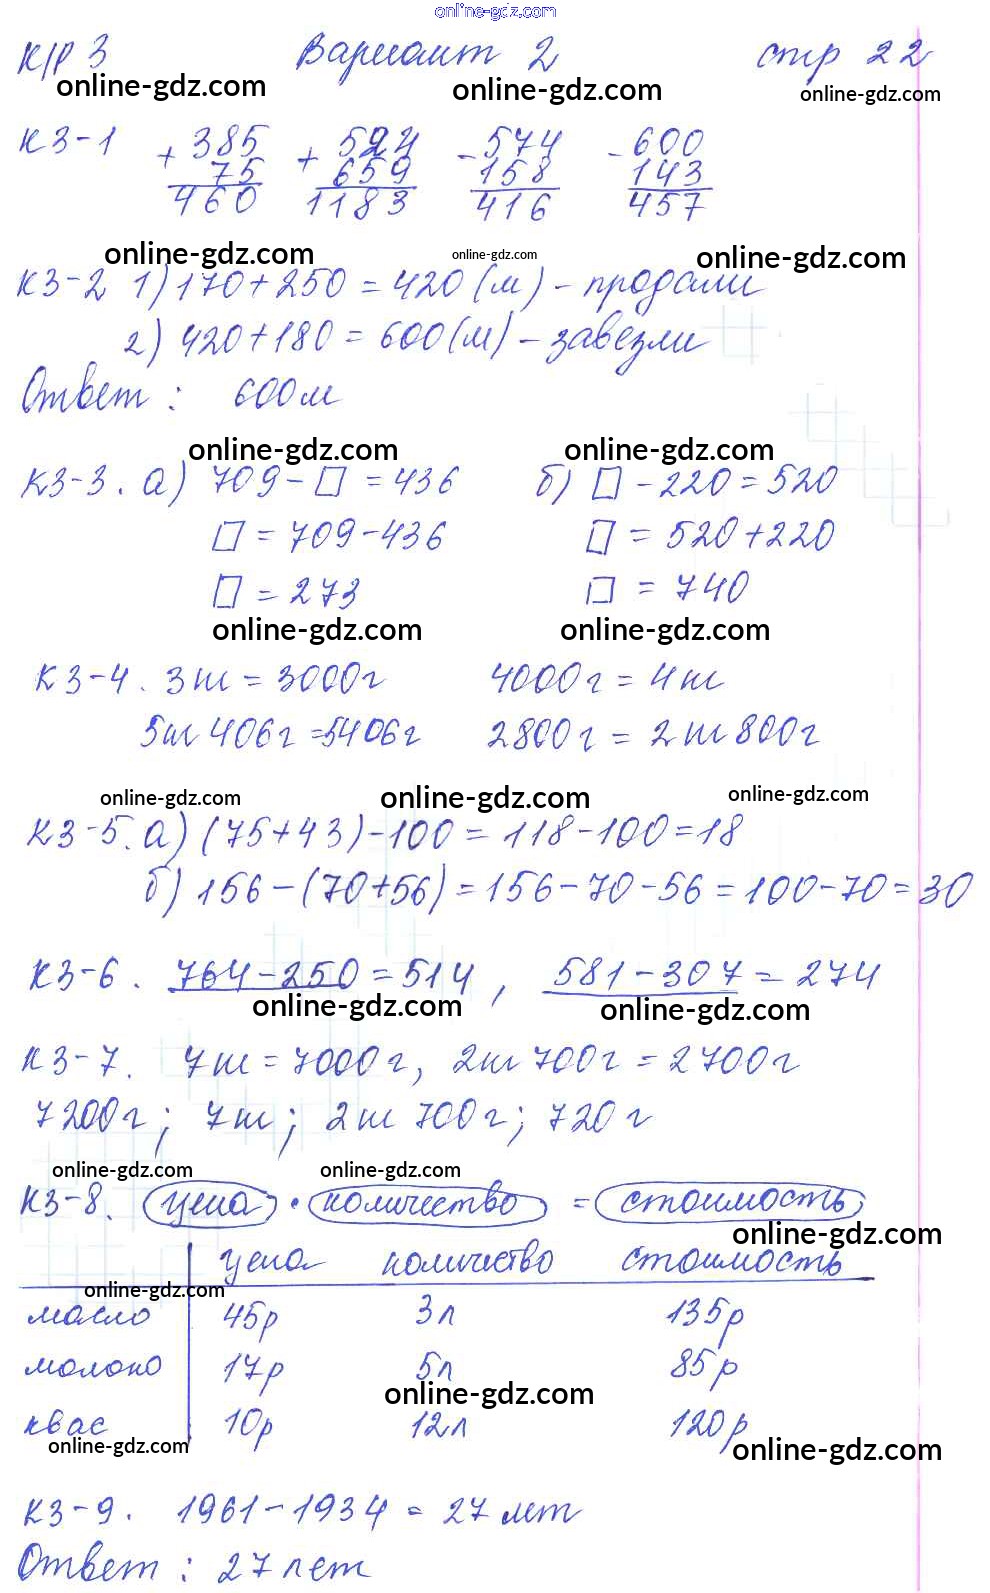 online-gdz.com
К/Р 3 Вариант 2 стр 22
online-gdz.com online-gdz.com online-gdz.com
К3-1 + 385 + 524 - 574 - 600
75 659 158 143
460 1183 416 457
online-gdz.com online-gdz.com online-gdz.com
К3-2 1) 170+250 = 420 (м) - продали
2) 420+180 = 600 (м) - завезли
Ответ : 600 м
online-gdz.com online-gdz.com
К3-3. а) 709 - □ = 436 б) □ - 220 = 520
□ = 709-436 □ = 520+220
□ = 273 □ = 740
online-gdz.com online-gdz.com
К3-4. 3т = 3000г 4000г = 4т
5т 406г = 5406г 2800г = 2т 800г
online-gdz.com online-gdz.com online-gdz.com
К3-5. а) (75+43)-100 = 118-100 = 18
б) 156-(70+56) = 156-70-56 = 100-70 = 30
К3-6. 764-250 = 514, 581-307 = 274
online-gdz.com online-gdz.com
К3-7. 7т = 7000г, 2т 700г = 2700г
7200г; 7т; 2т 700г; 720г
online-gdz.com online-gdz.com
К3-8. цена · количество = стоимость
online-gdz.com
цена количество стоимость
online-gdz.com
масло 45р 3л 135р
молоко 17р 5л 85р
online-gdz.com
квас 10р 12л 120р
online-gdz.com online-gdz.com
К3-9. 1961-1934 = 27 лет
Ответ : 27 лет